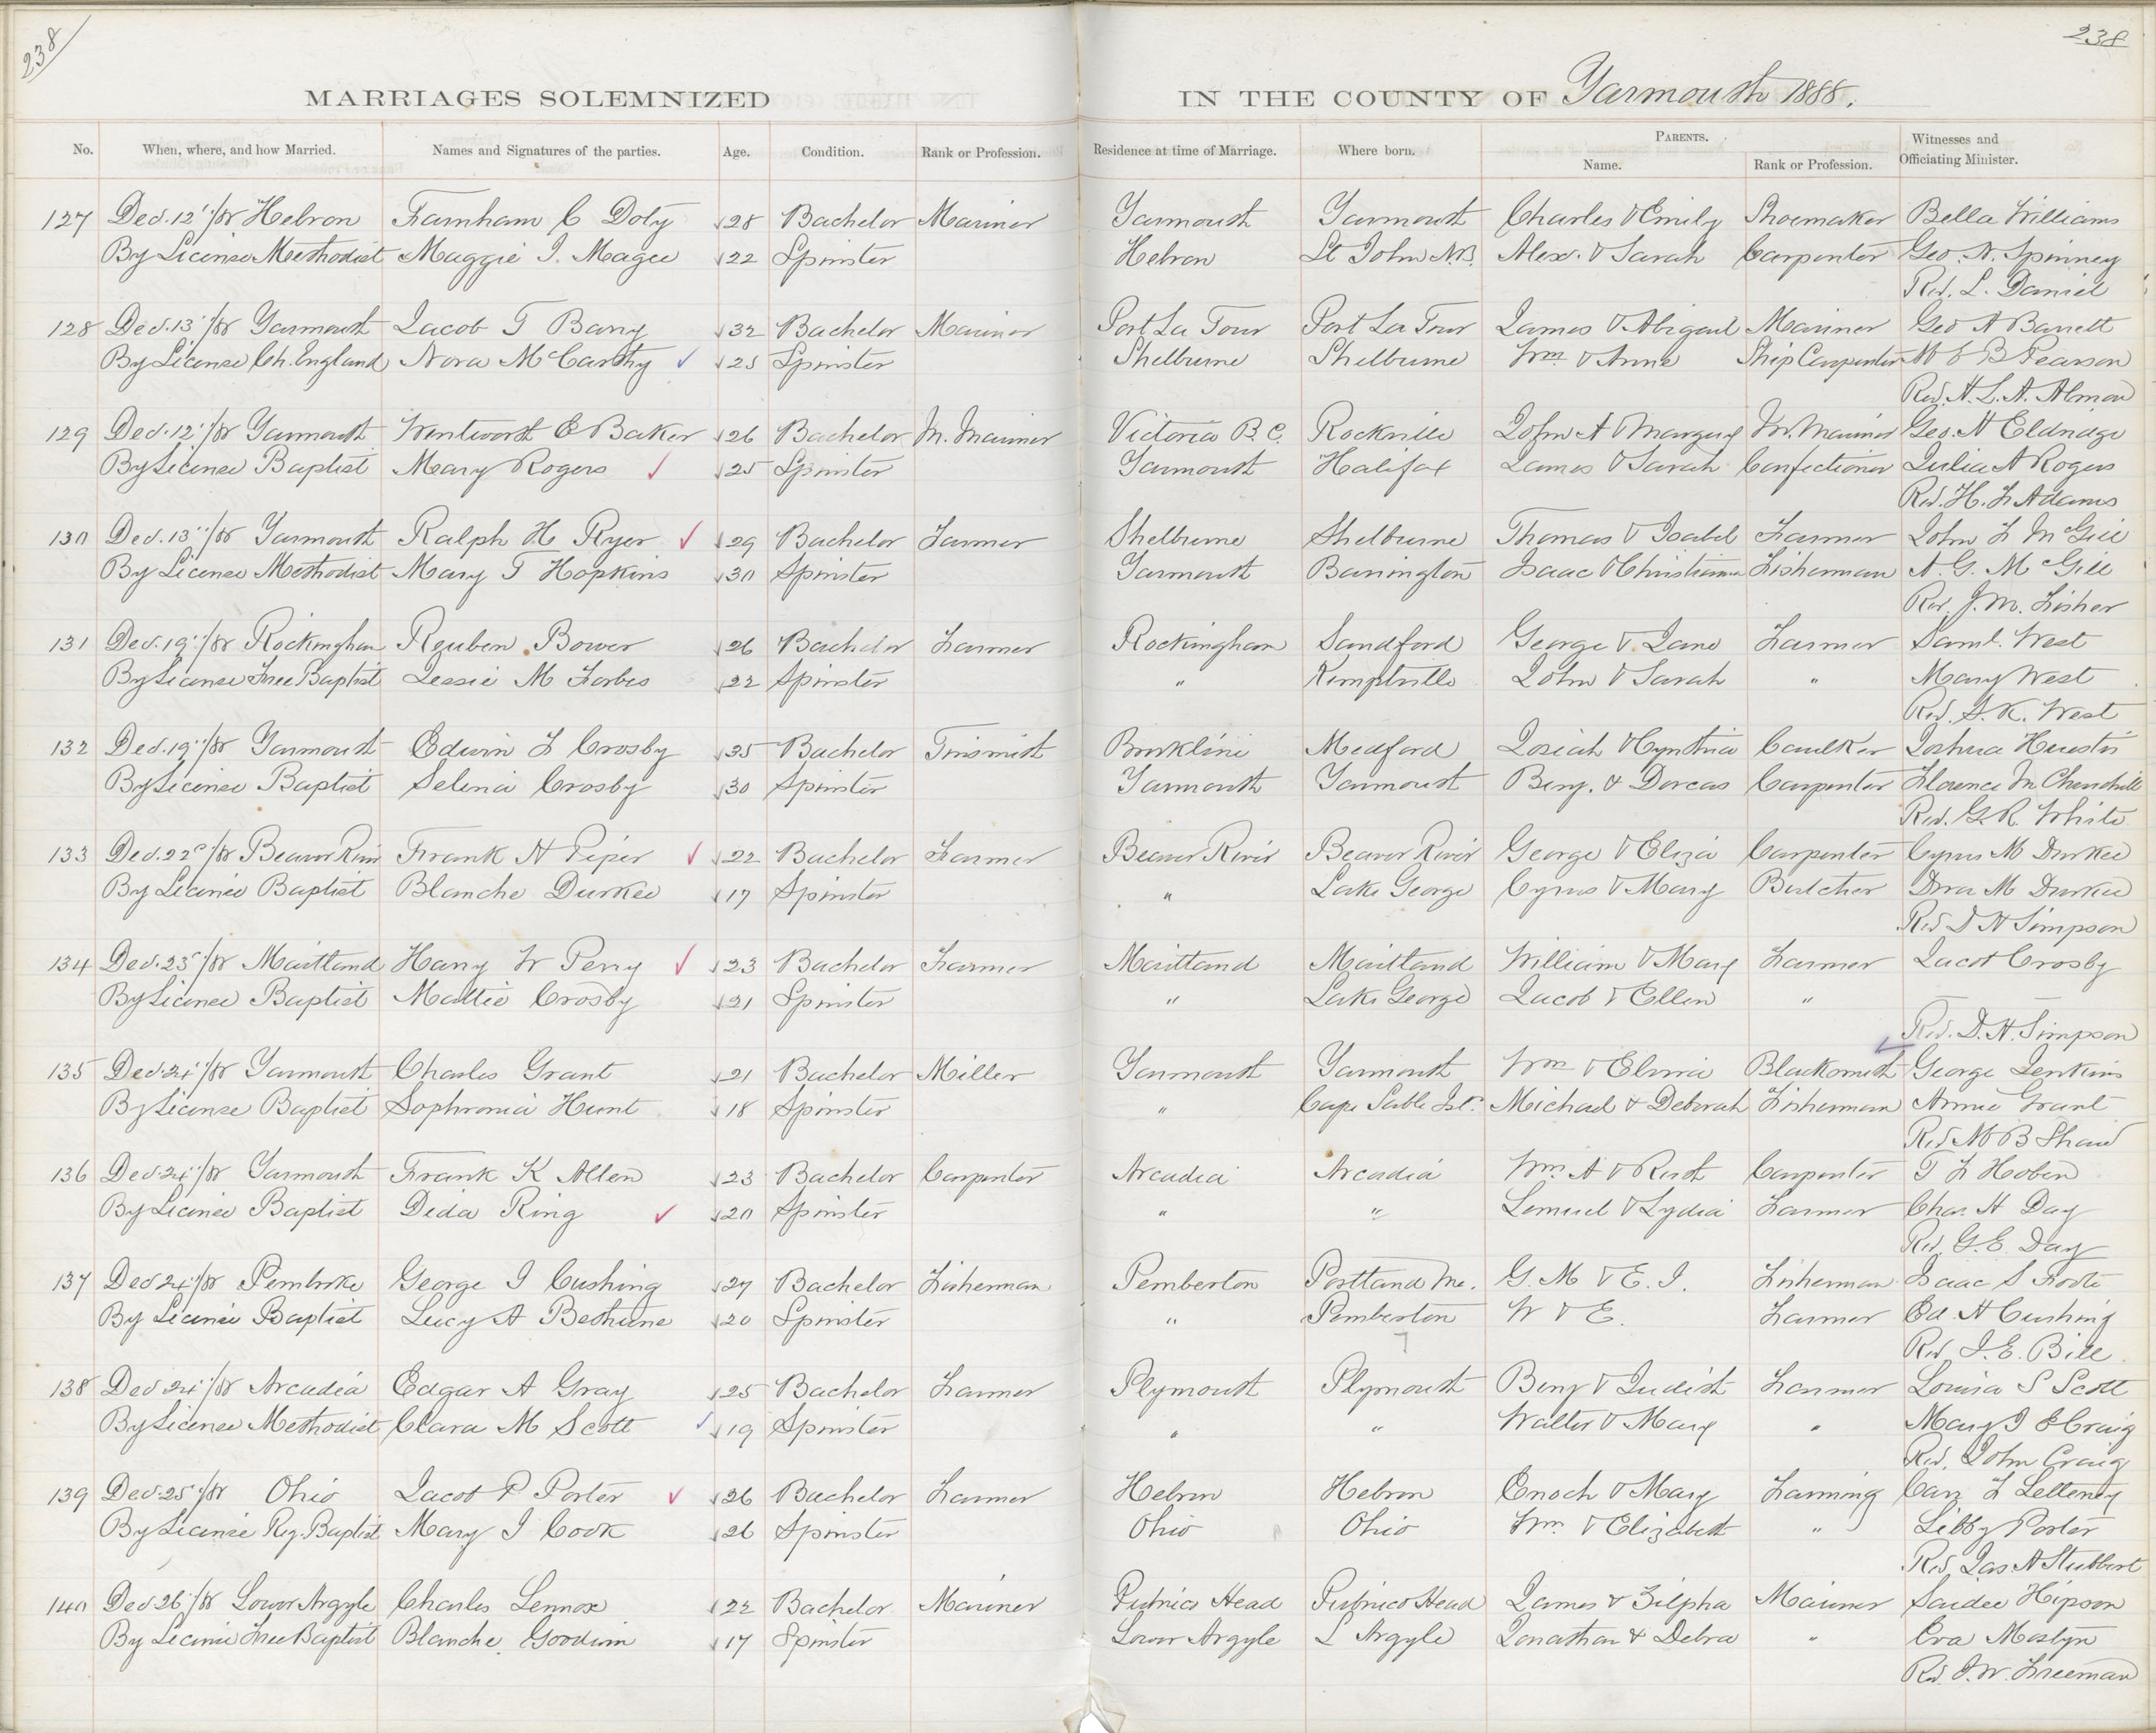 238
238
MARRIAGES SOLEMNIZED IN THE COUNTY OF Yarmouth 1888.
No. When, where, and how Married. Names and Signatures of the parties. Age. Condition. Rank or Profession. Residence at time of Marriage. Where born. PARENTS. Name. Rank or Profession. Witnesses and Officiating Minister.
127 Dec. 12"/88 Hebron Farnham C Doty 28 Bachelor Mariner Yarmouth Yarmouth Charles & Emily Shoemaker Bella Williams
By License Methodist Maggie I. Magee 22 Spinster Hebron St John N.B. Alex. & Sarah Carpenter Geo. N. Spinney
Rev. L. Daniel
128 Dec. 13"/88 Yarmouth Jacob T Barry 32 Bachelor Mariner Port La Tour Port La Tour James & Abigail Mariner Geo A Barrett
By License Ch. England Nora McCarthy 25 Spinster Shelburne Shelburne Wm & Anne Ship Carpenter B Pearson
Rev. H. L. A. Almon
129 Dec. 12"/88 Yarmouth Wentworth E Baker 26 Bachelor M. Mariner Victoria B.C. Rockville John A & Margery M. Mariner Geo. H Eldridge
By License Baptist Mary Rogers 25 Spinster Yarmouth Halifax James & Sarah Confectioner Julia A Rogers
Rev. H. F Adams
130 Dec. 13"/88 Yarmouth Ralph H Ryer 29 Bachelor Farmer Shelburne Shelburne Thomas & Isabel Farmer John F McGill
By License Methodist Mary T Hopkins 30 Spinster Yarmouth Barrington Isaac & Christianna Fisherman A. G. McGill
Rev. J. M. Fisher
131 Dec. 19"/88 Rockingham Reuben Bower 26 Bachelor Farmer Rockingham Sandford George & Jane Farmer Saml. West
By License Free Baptist Jessie M Forbes 22 Spinster " Kemptville John & Sarah " Mary West
Rev. S. K. West
132 Dec. 19"/88 Yarmouth Edwin F Crosby 35 Bachelor Tinsmith Brookline Medford Josiah & Cynthia Caulker Joshua Huestis
By License Baptist Selena Crosby 30 Spinster Yarmouth Yarmouth Benj. & Dorcas Carpenter Florence M Churchill
Rev. G. R. White
133 Dec. 22d/88 Beaver River Frank H Piper 22 Bachelor Farmer Beaver River Beaver River George & Eliza Carpenter Cyrus M Durkee
By License Baptist Blanche Durkee 17 Spinster " Lake George Cyrus & Mary Butcher Dora M Durkee
Rev D H Simpson
134 Dec. 23d/88 Maitland Harry W Perry 23 Bachelor Farmer Maitland Maitland William & Mary Farmer Jacob Crosby
By License Baptist Mattie Crosby 21 Spinster " Lake George Jacob & Ellen "
Rev. D. H. Simpson
135 Dec. 24"/88 Yarmouth Charles Grant 21 Bachelor Miller Yarmouth Yarmouth Wm & Elmira Blacksmith George Jenkins
By License Baptist Sophronia Hunt 18 Spinster " Cape Sable Isld. Michael & Deborah Fisherman Annie Grant
Rev M B Shaw
136 Dec. 24"/88 Yarmouth Frank K Allen 23 Bachelor Carpenter Arcadia Arcadia Wm A & Ruth Carpenter T F Hoben
By License Baptist Dida Ring 20 Spinster " " Lemuel & Lydia Farmer Chas. H Day
Rev. G. E. Day
137 Dec 24"/88 Pembroke George I Cushing 27 Bachelor Fisherman Pemberton Portland Me. G. M & E. I. Fisherman Isaac S Foote
By License Baptist Lucy A Bethune 20 Spinster " Pemberton W & E. Farmer Ed. A Cushing
Rev. I. E. Bill
138 Dec 24"/88 Arcadia Edgar A Gray 25 Bachelor Farmer Plymouth Plymouth Benj & Judith Farmer Louisa S Scott
By License Methodist Clara M Scott 19 Spinster " " Walter & Mary " Mary J E Craig
Rev. John Craig
139 Dec. 25"/88 Ohio Jacob P Porter 26 Bachelor Farmer Hebron Hebron Enoch & Mary Farming F Letteney
By License Reg. Baptist Mary J Cook 26 Spinster Ohio Ohio Wm & Elizabeth " Libby Porter
Rev Jas A Stubbert
140 Dec 26"/88 Lower Argyle Charles Lennox 22 Bachelor Mariner Pubnico Head Pubnico Head James & Zilpha Mariner Saidee Hipson
By License Free Baptist Blanche Goodwin 17 Spinster Lower Argyle L Argyle Jonathan & Debra " Eva Mostyn
Rev. J. W. Freeman